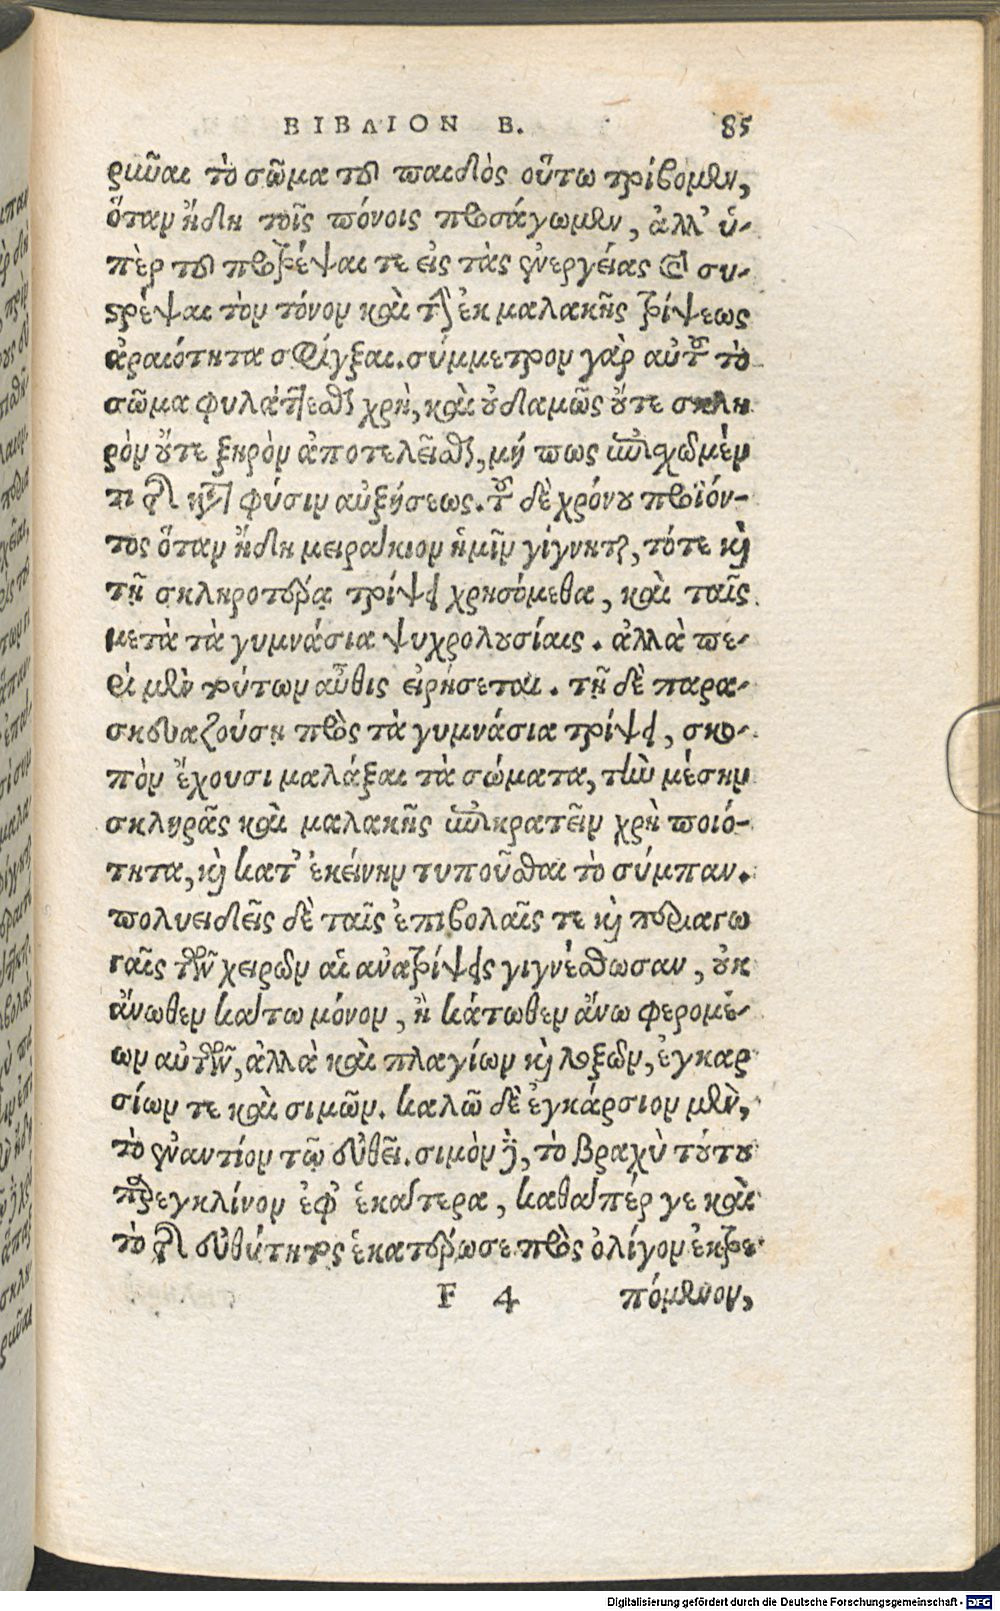 ΒΙΒΛΙΟΝ Β. 85
ρῦναι τὸ σῶμα τοῦ παιδὸς οὕτω τρίβομεν,
ὅταν ἤδη τοῖς πόνοις προσάγωμεν, ἀλλ' ὑ-
πὲρ τοῦ προτρέψαι τε εἰς τὰς ἐνεργείας καὶ συ-
στρέψαι τὸν τόνον καὶ τὴν ἐκ μαλακῆς τρίψεως
ἀραιότητα σφίγξαι. σύμμετρον γὰρ αὐτοῦ τὸ
σῶμα φυλάττεσθαι χρὴ, καὶ οὐδαμῶς οὔτε σκλη
ρὸν οὔτε ξηρὸν ἀποτελεῖσθαι, μή πως ἐπίσχωμέν
τι τῆς κατὰ φύσιν αὐξήσεως. τοῦ δὲ χρόνου προϊόν-
τος ὅταν ἤδη μειράκιον ἡμῖν γίγνηται, τότε καὶ
τῇ σκληροτέρᾳ τρίψει χρησόμεθα, καὶ ταῖς
μετὰ τὰ γυμνάσια ψυχρολουσίαις. ἀλλὰ πε-
ρὶ μὲν τούτων αὖθις εἰρήσεται. τῇ δὲ παρα-
σκευαζούσῃ πρὸς τὰ γυμνάσια τρίψει, σκο-
πὸν ἔχουσι μαλάξαι τὰ σώματα, τὴν μέσην
σκληρᾶς καὶ μαλακῆς ἐπικρατεῖν χρὴ ποιό-
τητα, καὶ κατ' ἐκείνην τυποῦσθαι τὸ σύμπαν.
πολυειδεῖς δὲ ταῖς ἐπιβολαῖς τε καὶ περιαγω
γαῖς τῶν χειρῶν αἱ ἀνατρίψεις γιγνέσθωσαν, οὐκ
ἄνωθεν κάτω μόνον, ἢ κάτωθεν ἄνω φερομέ-
ων αὐτῶν, ἀλλὰ καὶ πλαγίων καὶ λοξῶν, ἐγκαρ
σίων τε καὶ σιμῶν. καλῶ δὲ ἐγκάρσιον μὲν,
τὸ ἐναντίον τῷ εὐθεῖ. σιμὸν δὲ, τὸ βραχὺ τούτου
παρεγκλίνον ἐφ' ἑκάτερα, καθάπερ γε καὶ
τὸ τῆς εὐθύτητος ἑκατέρωσε πρὸς ὀλίγον ἐκτρε
F 4 πόμενον,
Digitalisierung gefördert durch die Deutsche Forschungsgemeinschaft - DFG